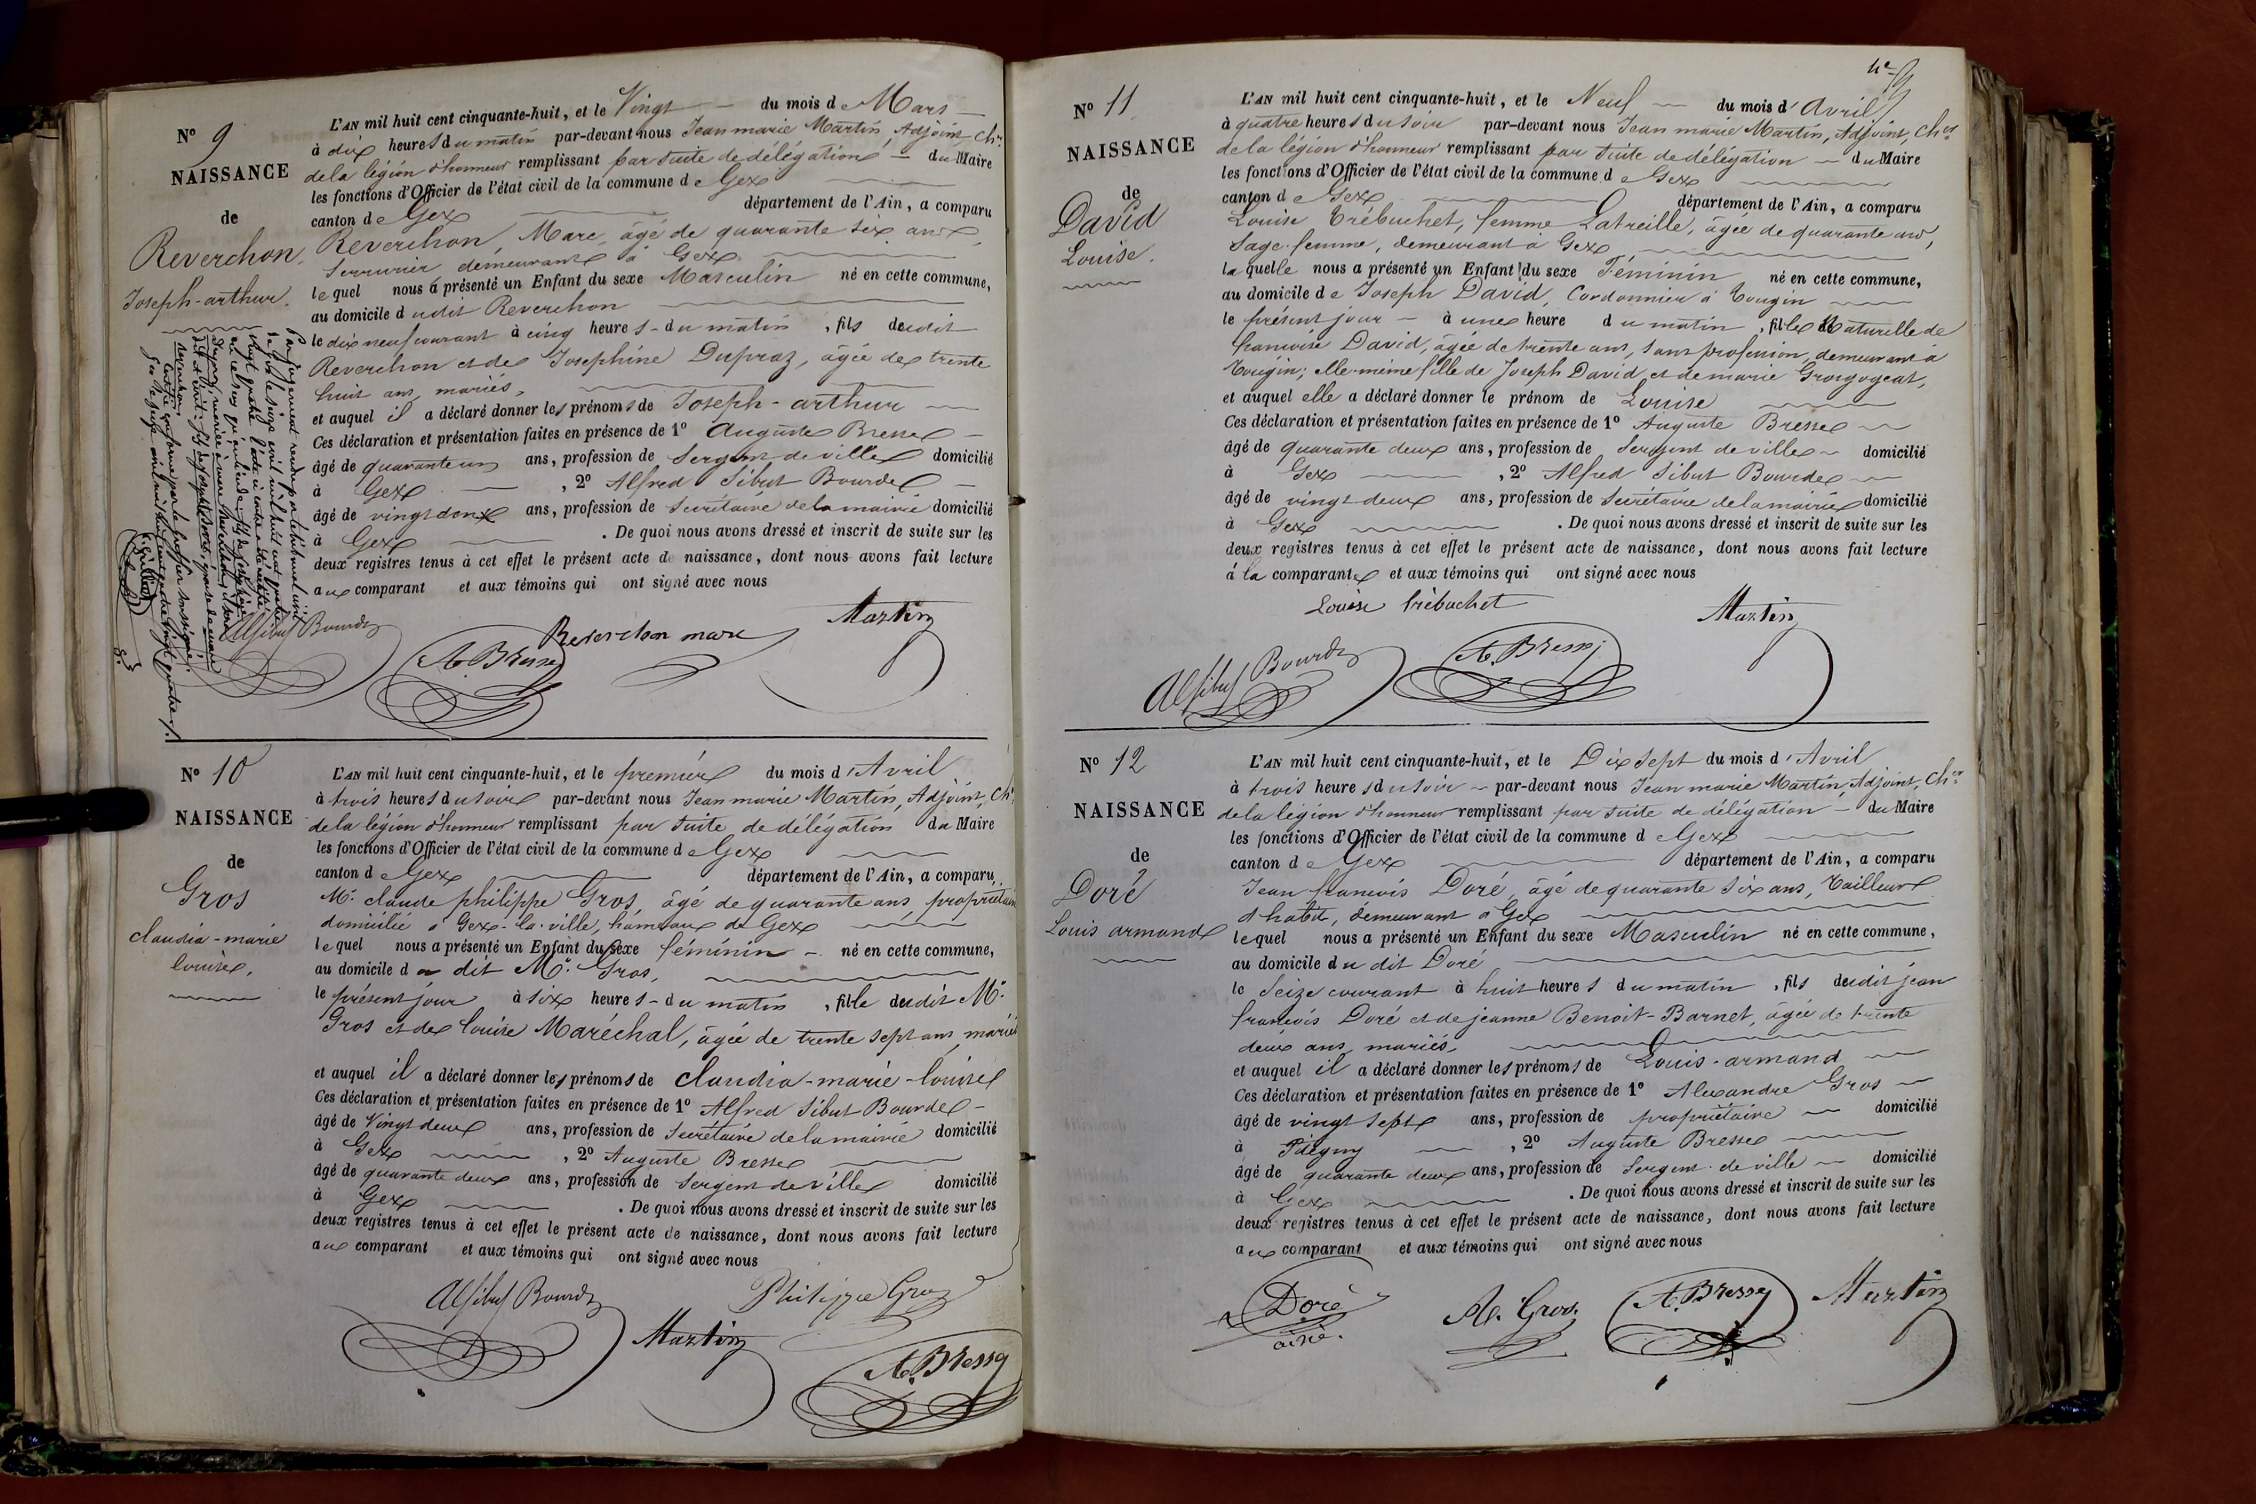 N° 9
NAISSANCE
de
Reverchon,
Joseph-arthur.
L'AN mil huit cent cinquante-huit, et le Vingt du mois de Mars
à dix heures du matin par-devant nous Jean marie Martin, Adjoint, Ch.er
de la légion d'honneur remplissant par suite de délégation du Maire
les fonctions d'Officier de l'état civil de la commune de Gex
canton de Gex département de l'Ain, a comparu
Reverchon, Marc, âgé de quarante six ans,
Serrurier demeurant à Gex
lequel nous a présenté un Enfant du sexe Masculin né en cette commune,
au domicile dudit Reverchon
le dix neuf courant à cinq heures du matin, fils dudit
Reverchon et de Josephine Dupraz, âgée de trente
huit ans, mariés,
et auquel il a déclaré donner les prénoms de Joseph-arthur
Ces déclaration et présentation faites en présence de 1° Auguste Bresse
âgé de quarante un ans, profession de Sergent de ville domicilié
à Gex, 2° Alfred Sibut Bourde
âgé de vingt deux ans, profession de Secrétaire de la mairie domicilié
à Gex. De quoi nous avons dressé et inscrit de suite sur les
deux registres tenus à cet effet le présent acte de naissance, dont nous avons fait lecture
aux comparant et aux témoins qui ont signé avec nous
Par jugement rendu par le tribunal civil
Alf Sibut Bourde
A. Bresse
Reverchon marc
Martin
N° 10
NAISSANCE
de
Gros
claudia-marie
louise,
L'AN mil huit cent cinquante-huit, et le premier du mois d'Avril
à trois heures du soir par-devant nous Jean marie Martin, Adjoint, Ch.er
de la légion d'honneur remplissant par suite de délégation du Maire
les fonctions d'Officier de l'état civil de la commune de Gex
canton de Gex département de l'Ain, a comparu
Mr. claude philippe Gros, âgé de quarante ans, propriétaire
domicilié à Gex-la-ville, hameau de Gex
lequel nous a présenté un Enfant du sexe féminin né en cette commune,
au domicile du dit Mr. Gros,
le présent jour à six heures du matin, fille dudit Mr.
Gros et de louise Maréchal, âgée de trente sept ans, mariés
et auquel il a déclaré donner les prénoms de claudia-marie-louise
Ces déclaration et présentation faites en présence de 1° Alfred Sibut Bourde
âgé de Vingt deux ans, profession de Secrétaire de la mairie domicilié
à Gex, 2° Auguste Bresse
âgé de quarante deux ans, profession de Sergent de ville domicilié
à Gex. De quoi nous avons dressé et inscrit de suite sur les
deux registres tenus à cet effet le présent acte de naissance, dont nous avons fait lecture
aux comparant et aux témoins qui ont signé avec nous
Alf Sibut Bourde
Philippe Gros
Martin
A. Bresse
4e
N° 11
NAISSANCE
de
David
Louise.
L'AN mil huit cent cinquante-huit, et le Neuf du mois d'Avril
à quatre heures du soir par-devant nous Jean marie Martin, Adjoint, Ch.er
de la légion d'honneur remplissant par suite de délégation du Maire
les fonctions d'Officier de l'état civil de la commune de Gex
canton de Gex département de l'Ain, a comparu
Louise Trébuchet, femme Latreille, âgée de quarante ans,
Sage-femme, demeurant à Gex
laquelle nous a présenté un Enfant du sexe Féminin né en cette commune,
au domicile de Joseph David, Cordonnier à Tougin
le présent jour à une heure du matin, fille Naturelle de
francoise David, âgée de trente ans, sans profession, demeurant à
Tougin; elle-même fille de Joseph David et de marie Grosgogeat,
et auquel elle a déclaré donner le prénom de Louise
Ces déclaration et présentation faites en présence de 1° Auguste Bresse
âgé de quarante deux ans, profession de Sergent de ville domicilié
à Gex, 2° Alfred Sibut Bourde
âgé de vingt deux ans, profession de Secrétaire de la mairie domicilié
à Gex. De quoi nous avons dressé et inscrit de suite sur les
deux registres tenus à cet effet le présent acte de naissance, dont nous avons fait lecture
à la comparante et aux témoins qui ont signé avec nous
Louise trébuchet
Martin
Alf Sibut Bourde
A. Bresse
N° 12
NAISSANCE
de
Doré
Louis armand
L'AN mil huit cent cinquante-huit, et le Dix Sept du mois d'Avril
à trois heures du soir par-devant nous Jean marie Martin, Adjoint, Ch.er
de la légion d'honneur remplissant par suite de délégation du Maire
les fonctions d'Officier de l'état civil de la commune de Gex
canton de Gex département de l'Ain, a comparu
Jean francois Doré, âgé de quarante six ans, Tailleur
d'habit, demeurant à Gex
lequel nous a présenté un Enfant du sexe Masculin né en cette commune,
au domicile du dit Doré
le Seize courant à huit heures du matin, fils dudit jean
francois Doré et de jeanne Benoit-Barnet, âgée de trente
deux ans, mariés,
et auquel il a déclaré donner les prénoms de Louis-armand
Ces déclaration et présentation faites en présence de 1° Alexandre Gros
âgé de vingt sept ans, profession de propriétaire domicilié
à Pitegny, 2° Auguste Bresse
âgé de quarante deux ans, profession de Sergent de ville domicilié
à Gex. De quoi nous avons dressé et inscrit de suite sur les
deux registres tenus à cet effet le présent acte de naissance, dont nous avons fait lecture
aux comparant et aux témoins qui ont signé avec nous
Doré
ainé.
Al. Gros.
A. Bresse
Martin